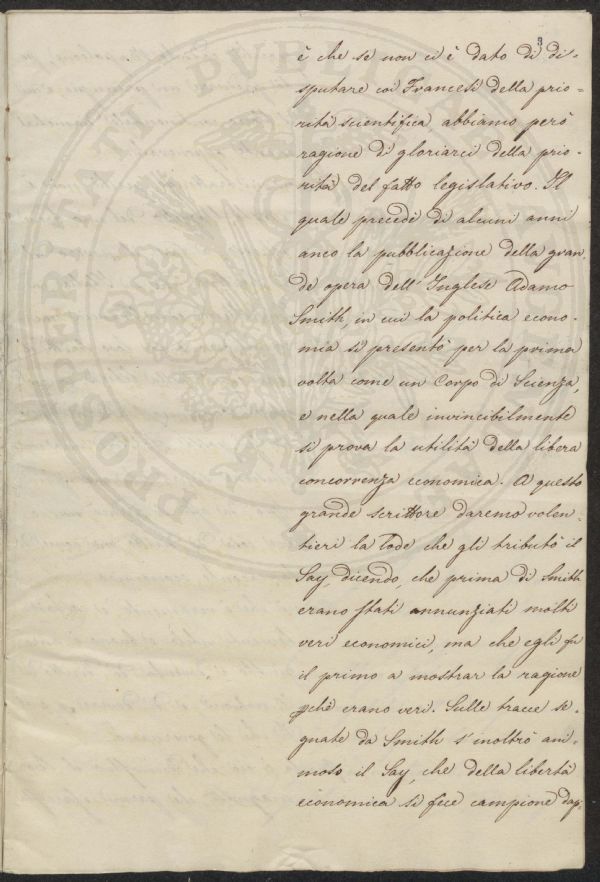 3
è che se non ci è dato di di-
sputare coi Francesi della prio-
rità scientifica abbiamo però
ragione di gloriarci della prio-
rità del fatto legislativo. Il
quale precede di alcuni anni
anco la pubblicazione della gran
de opera dell'Inglese Adamo
Smith, in cui la politica econo-
mia si presentò per la prima
volta come un Corpo di Scienza,
e nella quale invincibilmente
si prova la utilità della libera
concorrenza economica. A questo
grande scrittore daremo volen-
tieri la lode che gli tributò il
Say, dicendo, che prima di Smith
erano stati annunziati molti
veri economici, ma che egli fu
il primo a mostrar la ragione
pchè erano veri. Sulle tracce se-
gnate da Smith s'inoltrò ani-
moso il Say, che della libertà
economica si fece campione dap-
PROSPERITATI PUBLICAE